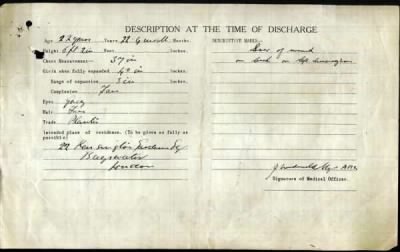 DESCRIPTION AT THE TIME OF DISCHARGE
Age, 22 years Years 22 6 Months.
Height, 6 ft 2 in Feet Inches.
Chest Measurement— 37 in
Girth when fully expanded 40 in Inches.
Range of expansion 3 in Inches.
Complexion Fair
Eyes
Hair
Trade Planter
Intended place of residence. (To be given as fully as
possible)
22 Kensington
Bayswater
London
DESCRIPTIVE MARKS.—
Scar of wound
on back on left
Signature of Medical Officer.